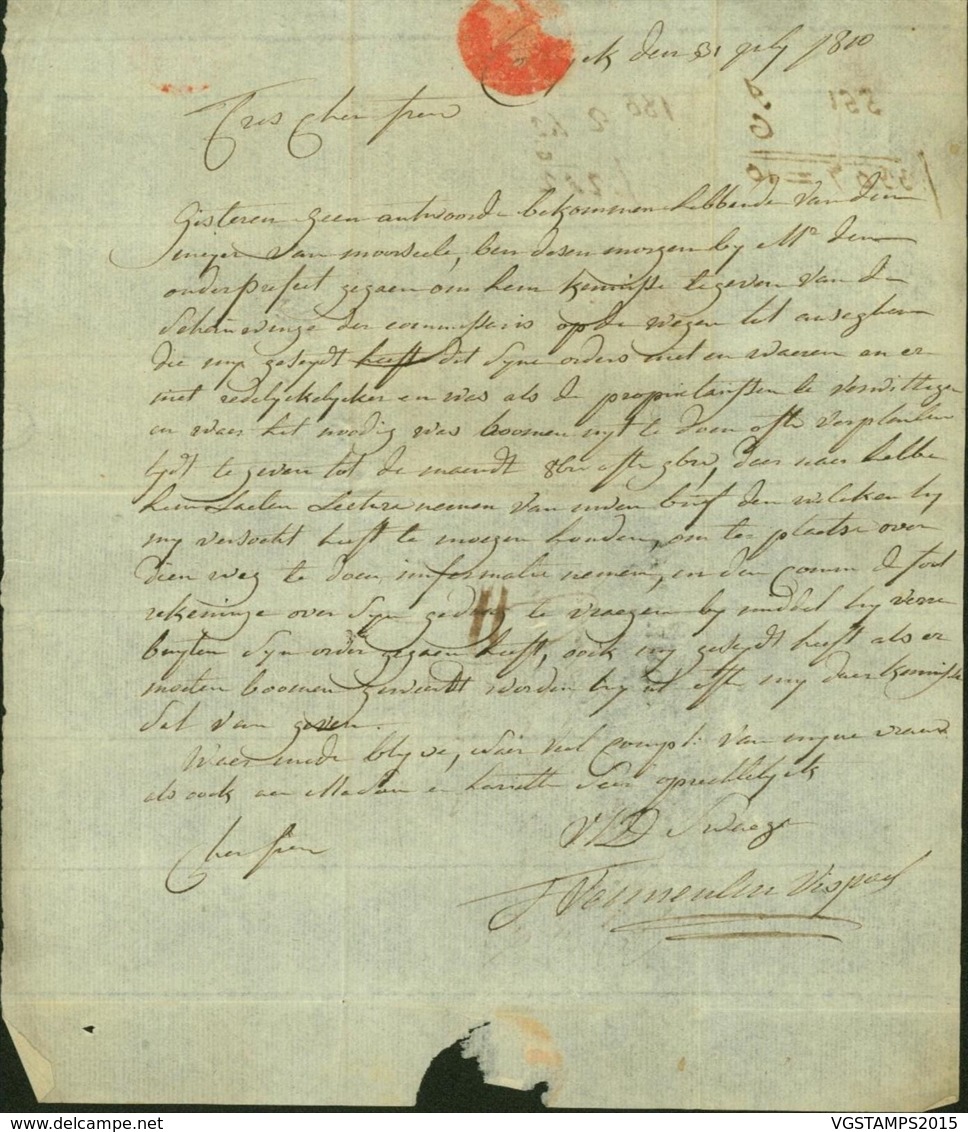 den 31 july 1810
Tres Cher frere
551
186
Gisteren geen antwoorde bekommen hebbende van den
van moorseele, ben desen morgen by Mr den
onderprefect gegaen om hem kennisse te geven van de
der commissaris op de wegen tot
die my geseydt heeft dat syne orders niet en waeren en er
niet redelyckelyker en was als de proprietarissen te verwittigen
en waer het noodig was boomen uyt te doen ofte verplanten
tydt te geven tot de maendt 8bre ofte 9bre, daer naer hebbe
hem laeten Lecture nemen van uwen brief den welcken hy
my versocht heeft te moegen houden, om ter plaetse over
dien weg te doen informatie nemen, en den comm
rekeninge over syn gedrag te vraegen by middel hy verre
buyten syn order gegaen heeft, oock my geseydt heeft als er
moeten boomen geweert worden hy ul ofte my daer kennisse
sal van geven.
Waer mede blyve, naer veel compli van myne vrauw
als oock aen Madame en harriette seer oprechtelyck
Cher frere
Vermeulen Vispoel
VGSTAMPS2015